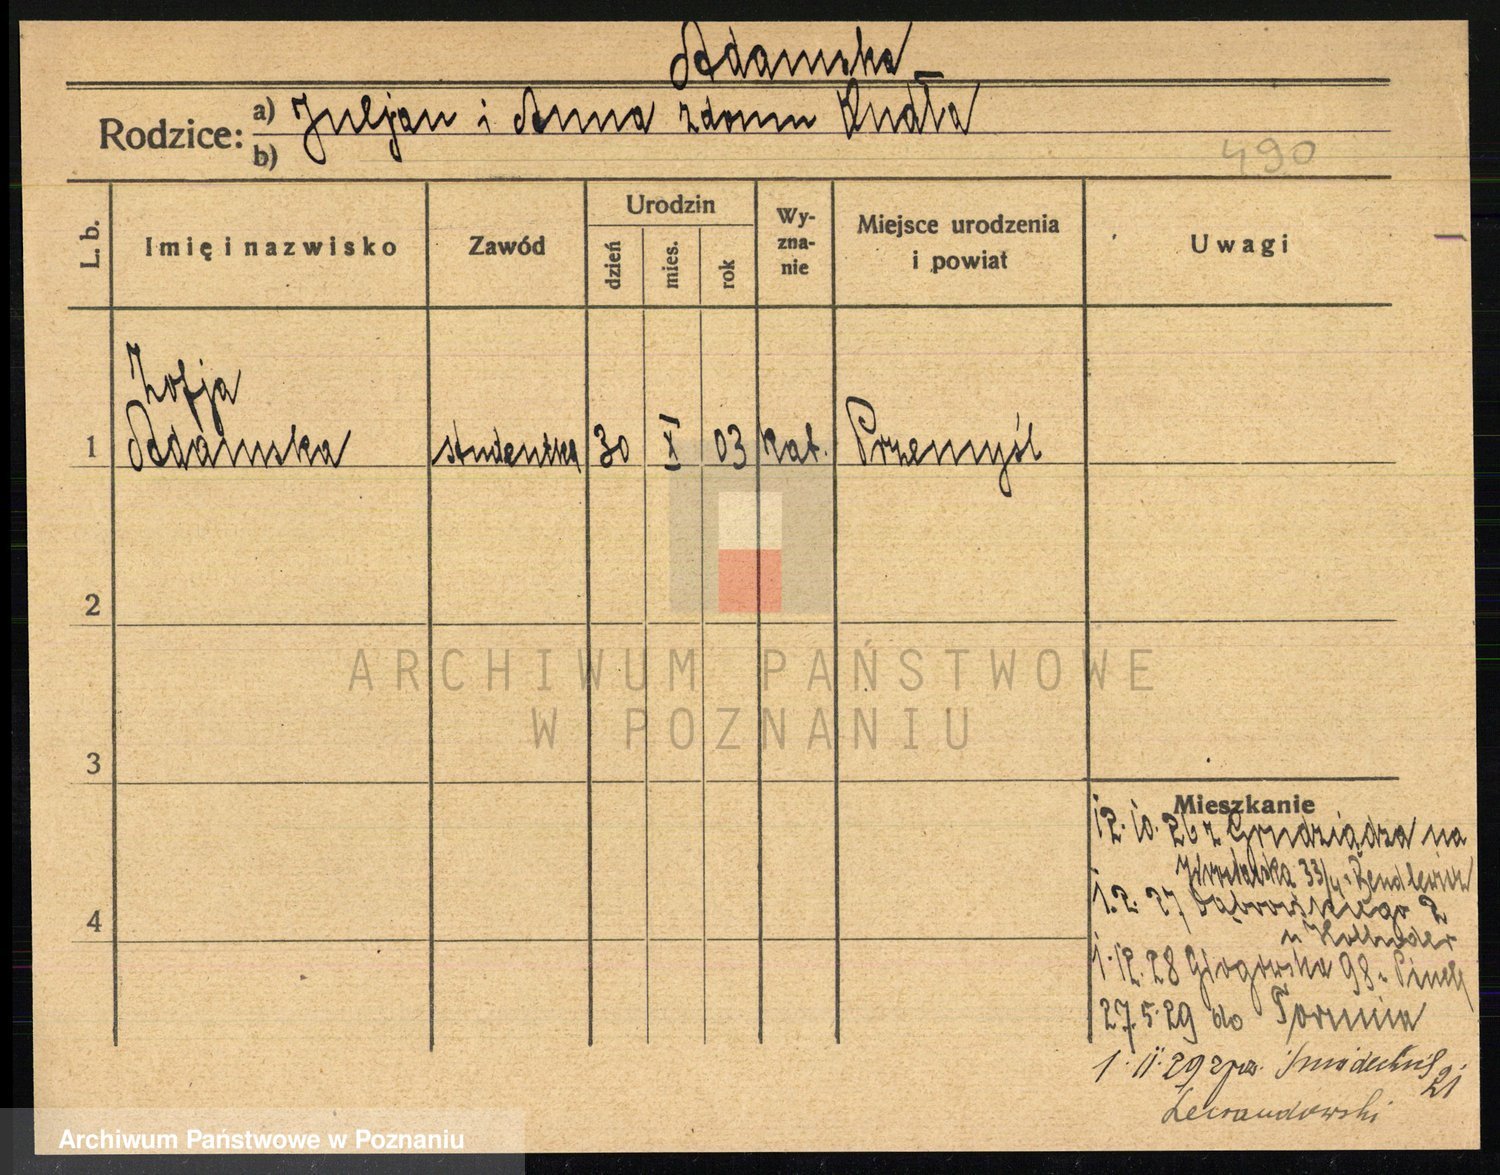 Adamska
Rodzice: a) Juljan i Anna z domu Kudła
b)
490
L. b.
Imię i nazwisko
Zawód
Urodzin
dzień
mies.
rok
Wy-
zna-
nie
Miejsce urodzenia
i powiat
Uwagi
Zofja
1 Adamska studentka 30 X 03 kat. Przemyśl
2
3
4
ARCHIWUM PAŃSTWOWE
W POZNANIU
Mieszkanie
12. 10. 26 z Grudziądza na
33/4
1. 2. 27 Dąbrowskiego 2
u Hollender
1. 12. 28 Głogowska 98
27. 5. 29 do Torunia
1. 11. 29 Śniadeckich 21
Lewandowski
Archiwum Państwowe w Poznaniu